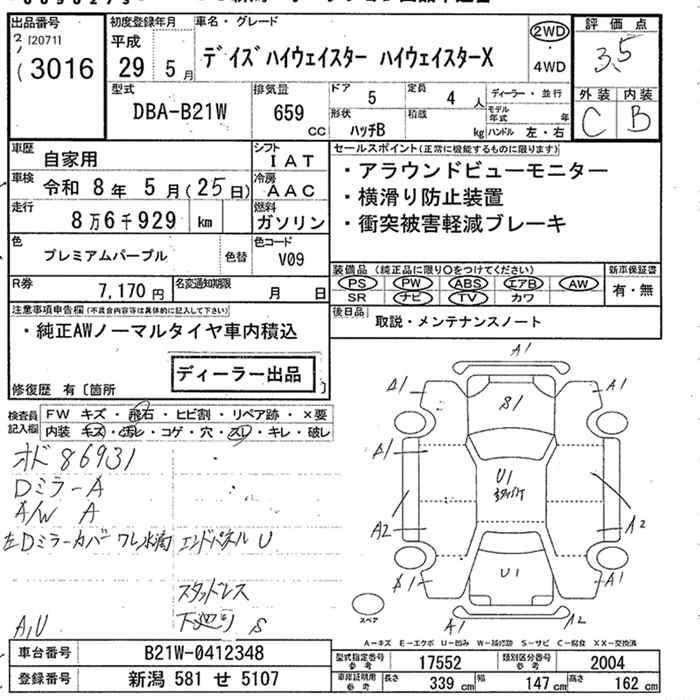 出品番号 初度登録年月 車名・グレード 評価点
[20711] 平成 デイズハイウェイスター ハイウェイスターX 2WD 3.5
3016 29 5月 4WD
外装 内装
型式 排気量 ドア 5 定員 4人 ディーラー・並行 C B
DBA-B21W 659 cc 形状 ハッチB 積載 kg モデル年式 年 ハンドル 左・右
車歴 自家用 シフト IAT セールスポイント(正常に機能するものに限ります)
車検 令和 8年 5月(25日) 冷房 AAC ・アラウンドビューモニター
・横滑り防止装置
走行 8万6千929 km 燃料 ガソリン ・衝突被害軽減ブレーキ
色 プレミアムパープル 色替 色コード V09
装備品(純正品に限り○をつけてください) 新車保証書
R券 7,170円 名変通知期限 月 日 PS PW ABS エアB AW 有・無
SR ナビ TV カワ
注意事項申告欄(不具合内容等は具体的に記入して下さい) 後日品 取説・メンテナンスノート
・純正AWノーマルタイヤ車内積込
ディーラー出品
修復歴 有[箇所 ]
検査員記入欄 FW キズ・飛石・ヒビ割・リペア跡・×要
内装 キズ・汚れ・コゲ・穴・スレ・キレ・破レ
オド 86931
Dミラー A
A/W A
左Dミラーカバー ワレ 水滴 エンドパネル U
スタッドレス
A,U 下廻り S
A1
A1 S1 A1
A1 U1
A2 A2
A1 U1 A1
スペア A1 A2
A-キズ E-エクボ U-凹み W-補修跡 S-サビ C-腐食 XX-交換済
車台番号 B21W-0412348 型式指定番号 参考 17552 類別区分番号 参考 2004
登録番号 新潟 581 せ 5107 車庫証明用 参考 長さ 339 cm 幅 147 cm 高さ 162 cm